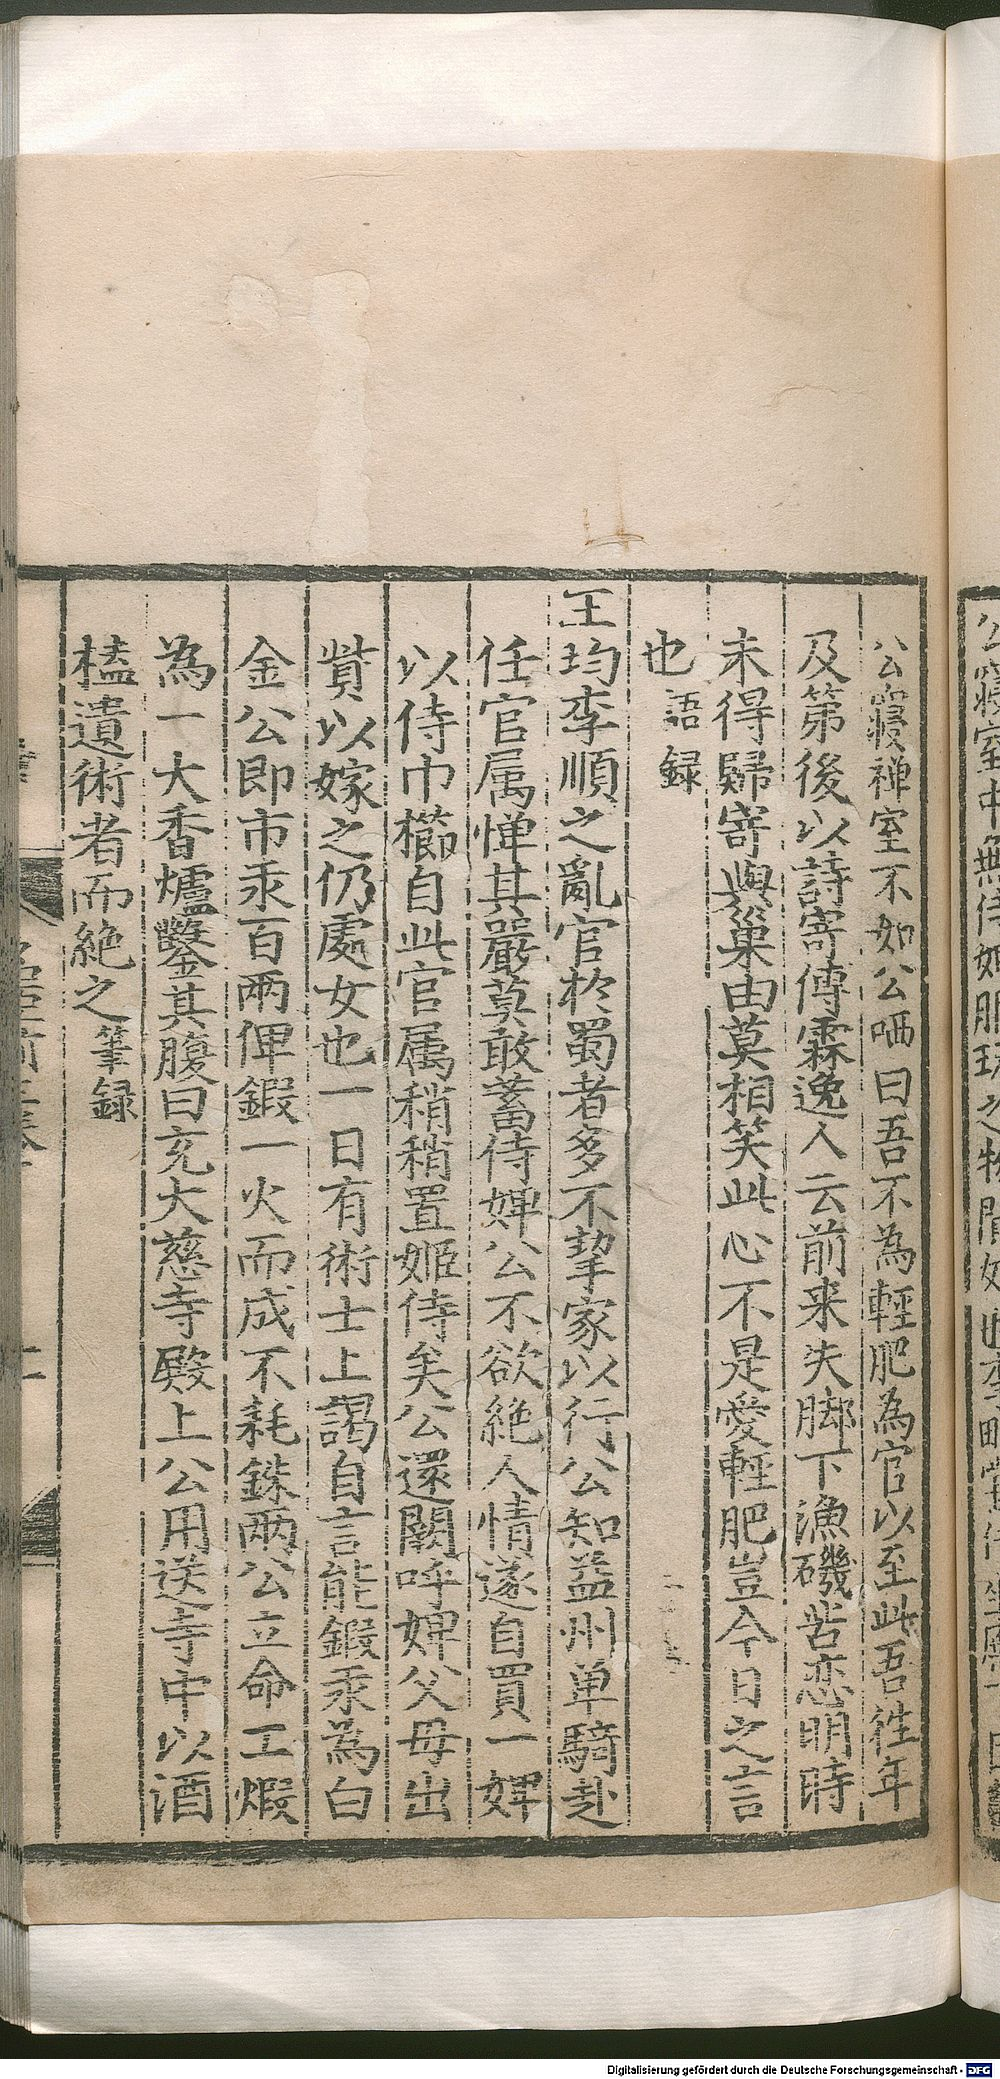 公寢禅室不如公哂曰吾不為輕肥為官以至此吾徃年
及第後以詩寄傅霖逸人云前来失脚下漁磯苦恋明時
未得歸寄與巢由莫相笑此心不是愛輕肥豈今日之言
也語録
王均李順之亂官於蜀者多不挈家以行公知益州单騎赴
任官属憚其嚴莫敢蓄侍婢公不欲絶人情遂自買一婢
以侍巾櫛自此官属稍稍置姬侍矣公還闕呼婢父母出
貲以嫁之仍處女也一日有術士上謁自言能鍜汞為白
金公即市汞百兩俾鍜一火而成不耗銖兩公立命工煅
為一大香爐鑿其腹曰充大慈寺殿上公用送寺中以酒
榼遺術者而絶之筆録
Digitalisierung gefördert durch die Deutsche Forschungsgemeinschaft - DFG